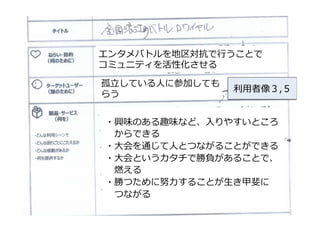 タイトル
全国津々のバトルロワイヤル
ねらい・目的
(何のために)
エンタメバトルを地区対抗で行うことで
コミュニティを活性化させる
ターゲットユーザー
(誰のために)
孤立している人に参加しても
らう
利用者像３,５
製品・サービス
(何を)
・興味のある趣味など、入りやすいところ
からできる
・大会を通じて人とつながることができる
・大会というカタチで勝負があることで、
燃える
・勝つために努力することが生き甲斐に
つながる